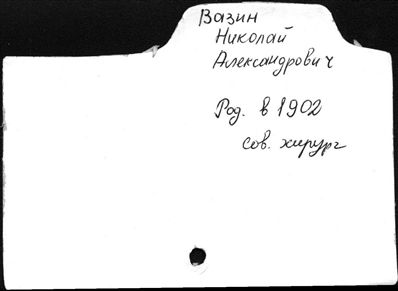 Вазин
Николай
Александрович
Род. в 1902
сов. хирург